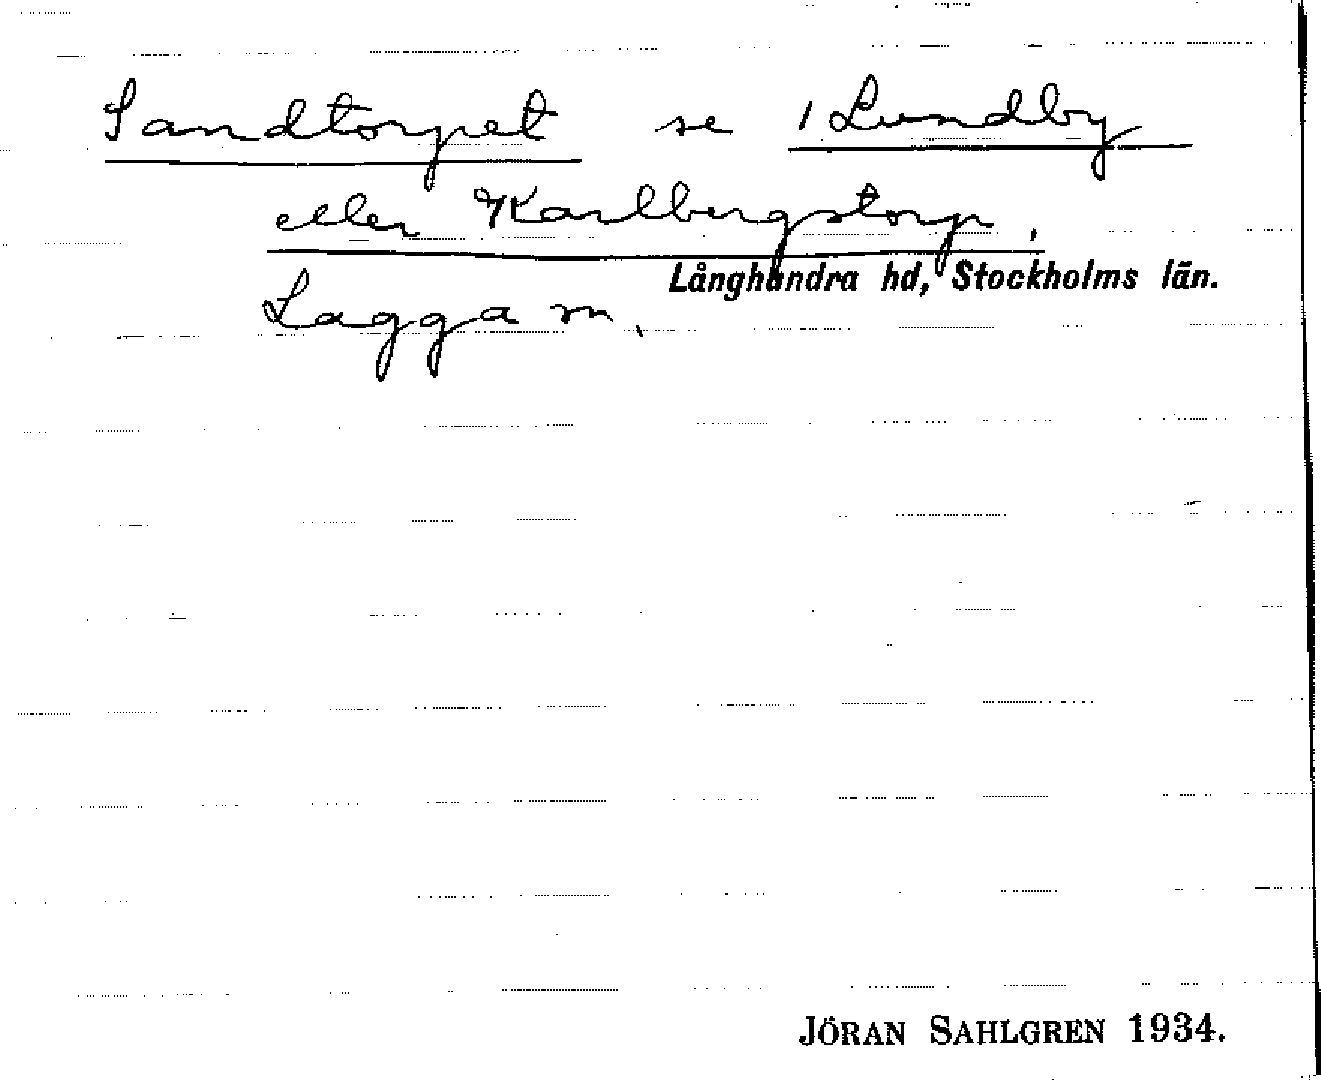 Sandtorpet se 1 Lundby
eller Karlbergstorp.
Långhundra hd, Stockholms län.
Lagga sn.
JÖRAN SAHLGREN 1934.